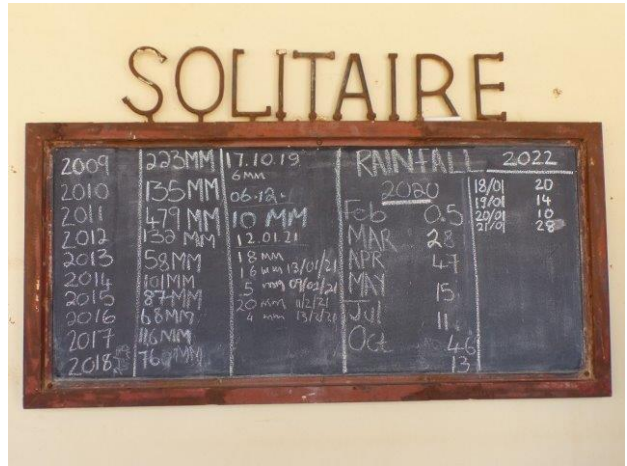 SOLITAIRE
2009 223MM
2010 135MM
2011 479MM
2012 132MM
2013 58MM
2014 101MM
2015 87MM
2016 68MM
2017 116MM
2018
17.10.19
6MM
06.12.
10 MM
12.01.21
18 MM
16 MM 13/01/21
5 09/02/21
20 MM 11/2/21
4 MM 13/2/21
RAINFALL
2020
Feb 0.5
MAR 28
APR 47
MAY 15
Jul 11
Oct 46
13
2022
18/01 20
19/01 14
20/01 10
21/01 28